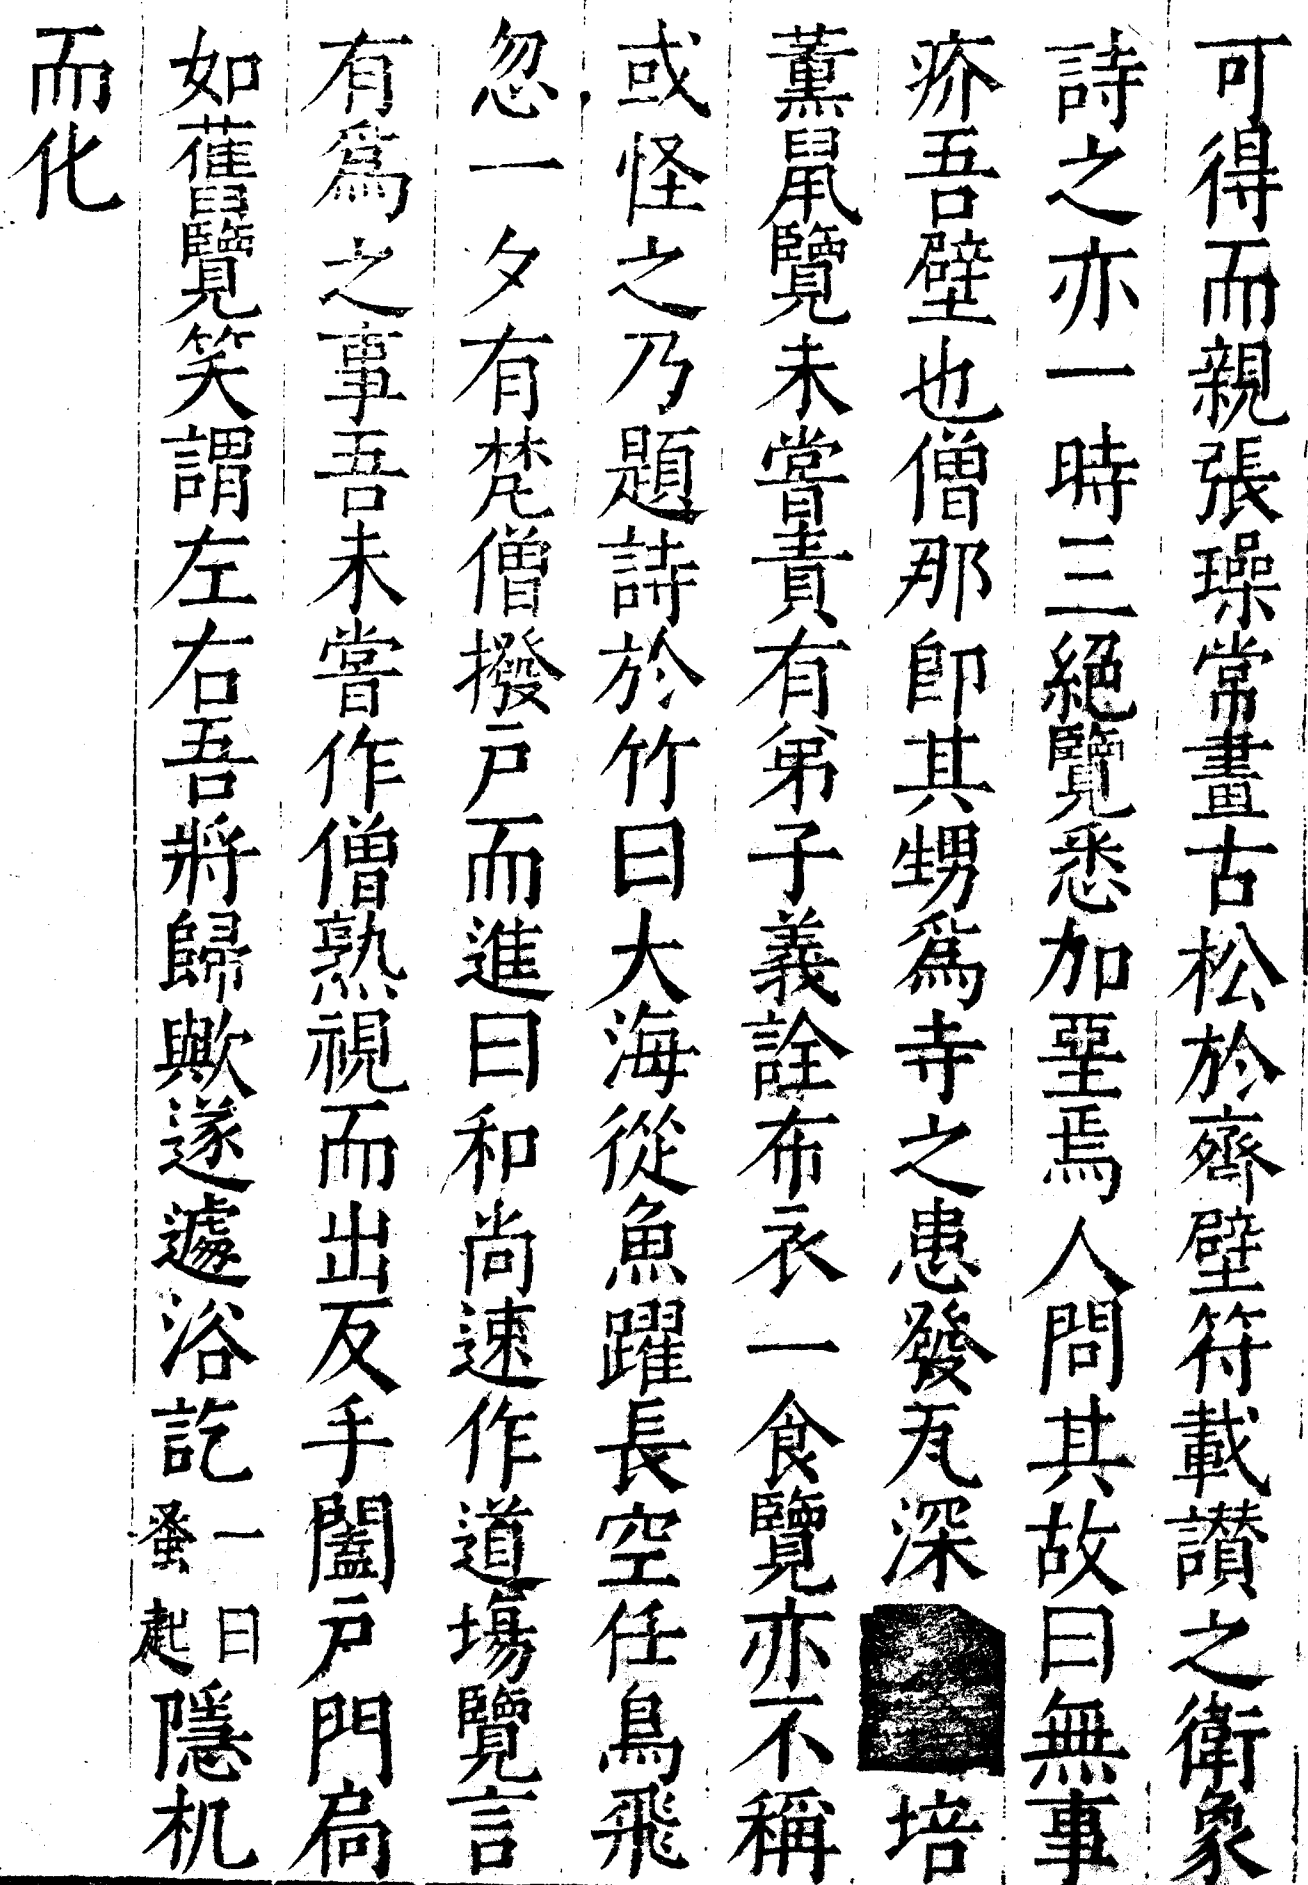 可得而親張璪常畫古松於齊壁符載讚之衛象
詩之亦一時三絕覽悉加堊焉人問其故曰無事
疥吾壁也僧那即其甥爲寺之患發瓦深培
薰鼠覽未嘗責有弟子義詮布衣一食覽亦不稱
或怪之乃題詩於竹曰大海從魚躍長空任鳥飛
忽一夕有梵僧撥戶而進曰和尚速作道塲覽言
有爲之事吾未嘗作僧熟視而出反手闔戶門扃
如舊覽笑謂左右吾將歸歟遂遽浴訖一曰蚤起隱机
而化